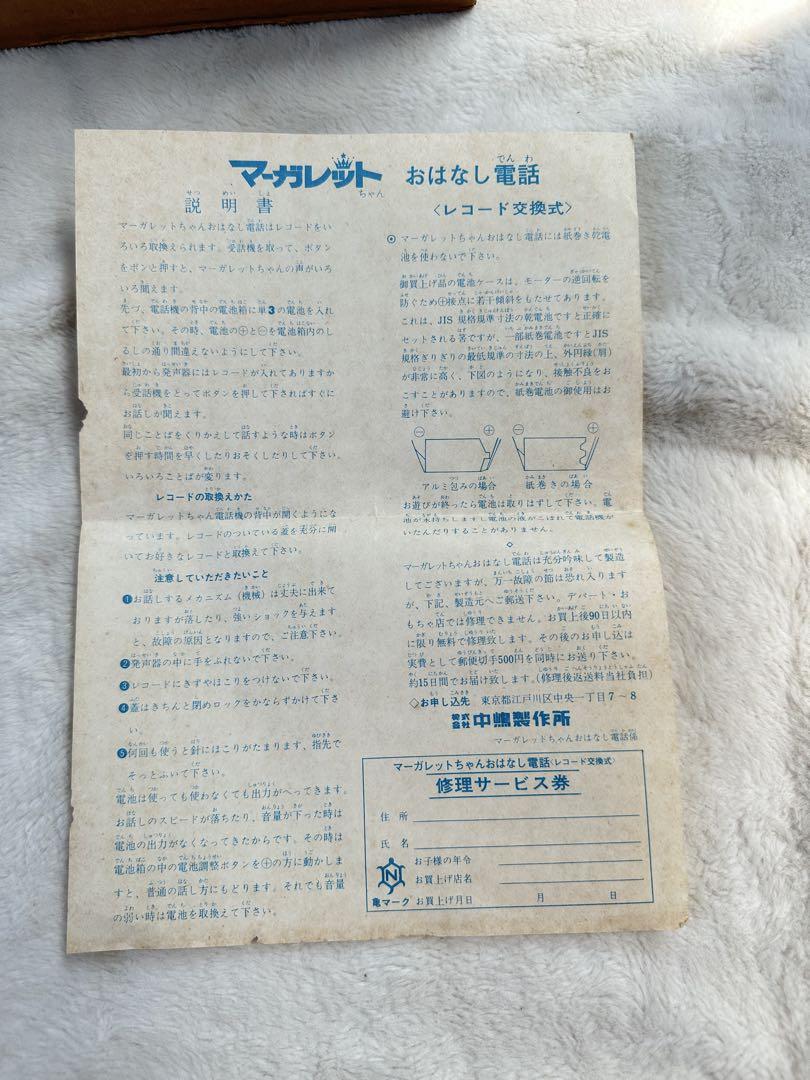 マーガレットちゃん おはなし電話
説明書
〈レコード交換式〉
マーガレットちゃんおはなし電話はレコードをい
ろいろ取換えられます。受話機を取って、ボタン
をポンと押すと、マーガレットちゃんの声がいろ
いろ聞えます。
先づ、電話機の背中の電池箱に単3の電池を入れ
て下さい。その時、電池の⊕と⊖を電池箱内のし
るしの通り間違えないようにして下さい。
最初から発声器にはレコードが入れてありますか
ら受話機をとってボタンを押して下さればすぐに
お話しが聞えます。
同じことばをくりかえして話すような時はボタン
を押す時間を早くしたりおそくしたりして下さい。
いろいろことばが変ります。
レコードの取換えかた
マーガレットちゃん電話機の背中が開くようにな
っています。レコードのついている蓋を充分に開
いてお好きなレコードと取換えて下さい。
注意していただきたいこと
❶お話しするメカニズム(機械)は丈夫に出来て
おりますが落したり、強いショックを与えます
と、故障の原因となりますので、ご注意下さい。
❷発声器の中に手をふれないで下さい。
❸レコードにきずやほこりをつけないで下さい。
❹蓋はきちんと閉めロックをかならずかけて下さ
い。
❺何回も使うと針にほこりがたまります、指先で
そっとふいて下さい。
電池は使っても使わなくても出力がへってきます。
お話しのスピードが落ちたり、音量が下った時は
電池の出力がなくなってきたからです。その時は
電池箱の中の電池調整ボタンを⊕の方に動かしま
すと、普通の話し方にもどります。それでも音量
の弱い時は電池を取換えて下さい。
◉ マーガレットちゃんおはなし電話には紙巻き乾電
池を使わないで下さい。
御買上げ品の電池ケースは、モーターの逆回転を
防ぐため⊕接点に若干傾斜をもたせてあります。
これは、JIS規格規準寸法の乾電池ですと正確に
セットされる筈ですが、一部紙巻電池ですとJIS
規格ぎりぎりの最低規準の寸法の上、外円縁(肩)
が非常に高く、下図のようになり、接触不良をお
こすことがありますので、紙巻電池の御使用はお
避け下さい。
⊖ ⊕ ⊖ ⊕
アルミ包みの場合 紙巻きの場合
お遊びが終ったら電池は取りはずして下さい。電
池が永持ちしますし電池の液がこぼれて電話機が
いたんだりすることがありません。
◇
マーガレットちゃんおはなし電話は充分吟味して製造
してございますが、万一故障の節は恐れ入ります
が、下記、製造元へご郵送下さい。デパート・お
もちゃ店では修理できません。お買上後90日以内
に限り無料で修理致します。その後のお申し込は
実費として郵便切手500円を同時にお送り下さい。
約15日間でお届け致します。(修理後返送料当社負担)
◇お申し込先 東京都江戸川区中央一丁目7～8
株式会社 中嶋製作所
マーガレットちゃんおはなし電話係
マーガレットちゃんおはなし電話〈レコード交換式〉
修理サービス券
住所
氏名
お子様の年令
お買上げ店名
亀マーク お買上げ月日 月 日